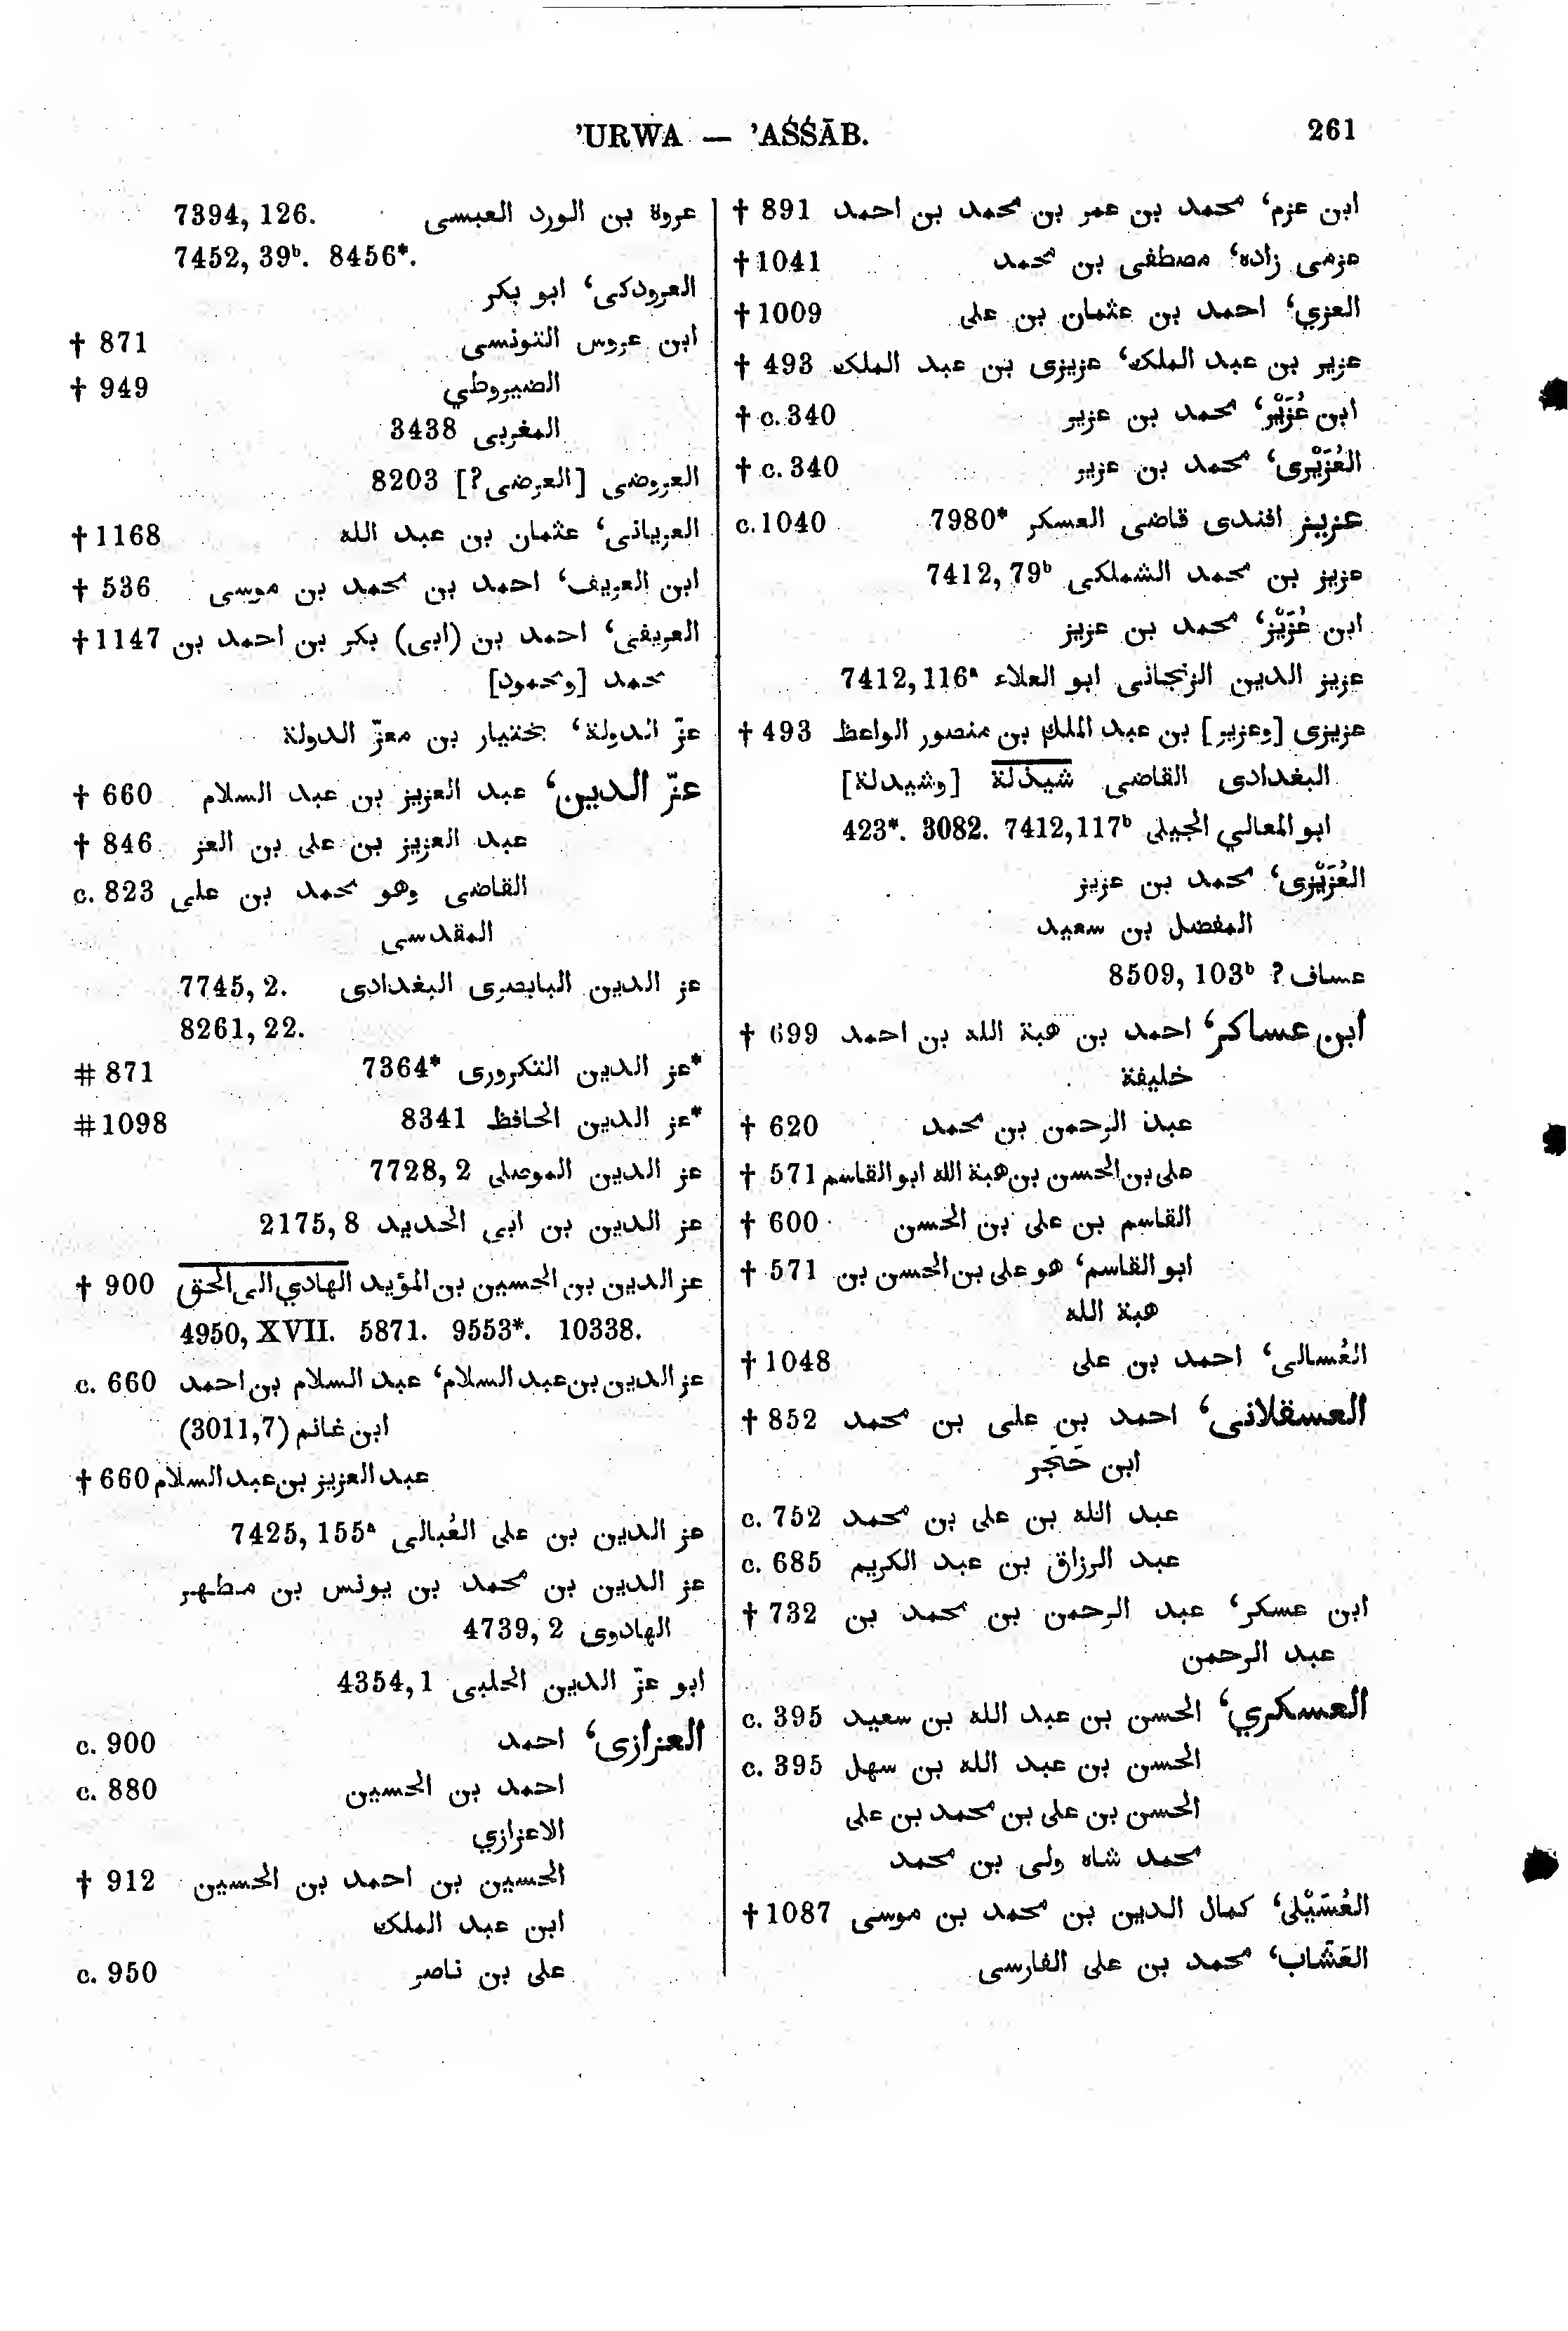 ’URWA — ’AŚŚĀB. 261
عروة بن الورد العبسى 7394, 126.
7452, 39ᵇ. 8456*.
العرودكى، ابو بكر
ابن عروس التونسى † 871
الضيروطي † 949
المغربى 3438
العروضى [العرضى?] 8203
العريانى، عثمان بن عبد الله †1168
ابن العريف، احمد بن محمد بن موسى † 536
العريفى، احمد بن (ابى) بكر بن احمد بن †1147
محمد [ومحمود]
عزّ الدولة، بختيار بن معزّ الدولة
عزّ الدين، عبد العزيز بن عبد السلام † 660
عبد العزيز بن على بن العز † 846
القاضى وهو محمد بن على c. 823
المقدسى
عز الدين البابصرى البغدادى 7745, 2.
8261, 22.
*عز الدين التكرورى 7364* # 871
*عز الدين الحافظ 8341 #1098
عز الدين الموصلى 7728, 2
عز الدين بن ابى الحديد 2175, 8
عز الدين بن الحسين بن المؤيد الهادي الى الحق † 900
4950, XVII. 5871. 9553*. 10338.
عز الدين بن عبد السلام، عبد السلام بن احمد c. 660
ابن غانم (3011,7)
عبد العزيز بن عبد السلام † 660
عز الدين بن على العُبالى 7425, 155ᵃ
عز الدين بن محمد بن يونس بن مطهر
الهادوى 4739, 2
ابو عزّ الدين الحلبى 4354, 1
العزازى، احمد c. 900
احمد بن الحسين c. 880
الاعزازي
الحسين بن احمد بن الحسين † 912
ابن عبد الملك
على بن ناصر c. 950
ابن عزم، محمد بن عمر بن محمد بن احمد † 891
عزمى زاده، مصطفى بن محمد †1041
العزي، احمد بن عثمان بن على †1009
عزير بن عبد الملك، عزيزى بن عبد الملك † 493
ابن عُزَيْر، محمد بن عزير † c. 340
العُزَيْرى، محمد بن عزير † c. 340
عزيز افندى قاضى العسكر 7980* c. 1040
عزيز بن محمد الشملكى 7412, 79ᵇ
ابن عُزَيْز، محمد بن عزيز
عزيز الدين الزنجانى ابو العلاء 7412, 116ᵃ
عزيزى [وعزير] بن عبد الملك بن منصور الواعظ † 493
البغدادى القاضى شيذلة [وشيدلة]
ابو المعالي الجيلى 423*. 3082. 7412, 117ᵇ
العُزَيْزى، محمد بن عزيز
المفضل بن سعيد
عساف? 8509, 103ᵇ
ابن عساكر، احمد بن هبة الله بن احمد † 699
خليفة
عبد الرحمن بن محمد † 620
على بن الحسن بن هبة الله ابو القاسم † 571
القاسم بن على بن الحسن † 600
ابو القاسم، هو على بن الحسن بن † 571
هبة الله
العُسالى، احمد بن على †1048
العسقلانى، احمد بن على بن محمد † 852
ابن حَجَر
عبد الله بن على بن محمد c. 752
عبد الرزاق بن عبد الكريم c. 685
ابن عسكر، عبد الرحمن بن محمد بن † 732
عبد الرحمن
العسكري، الحسن بن عبد الله بن سعيد c. 395
الحسن بن عبد الله بن سهل c. 395
الحسن بن على بن محمد بن على
محمد شاه ولى بن محمد
العُسَيْلى، كمال الدين بن محمد بن موسى †1087
العَشّاب، محمد بن على الفارسى